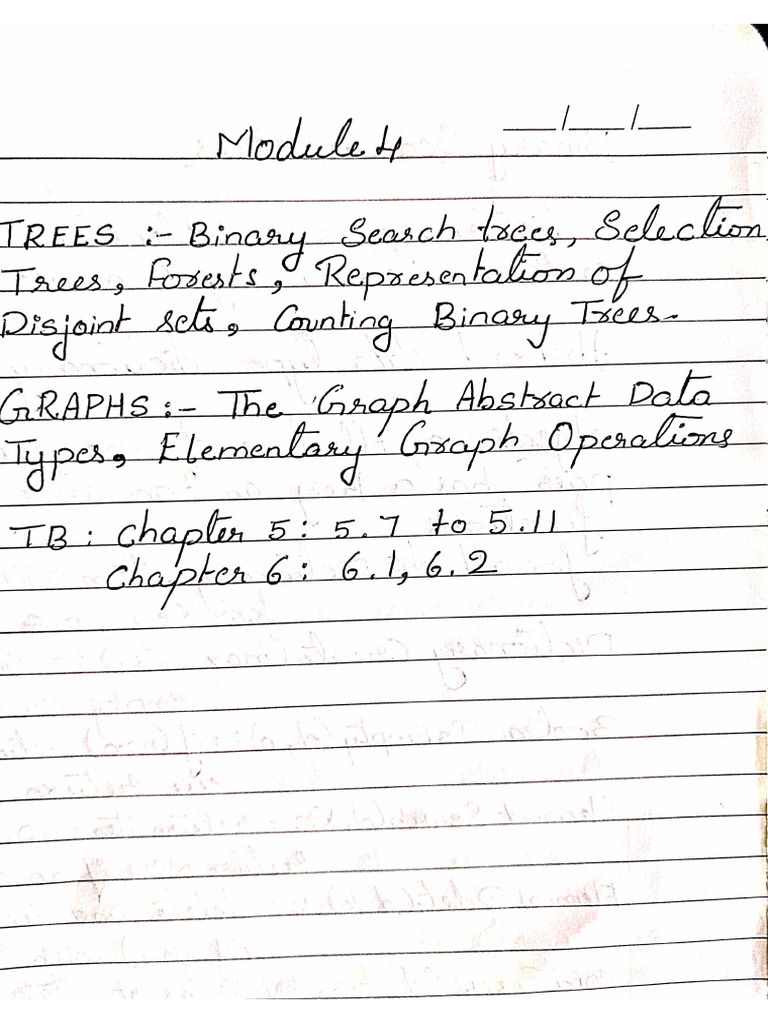 __/__/__
Module 4
TREES :- Binary Search trees, Selection
Trees, Forests, Representation of
Disjoint sets, Counting Binary Trees.
GRAPHS :- The Graph Abstract Data
Types, Elementary Graph Operations
TB : Chapter 5 : 5.7 to 5.11
Chapter 6 : 6.1, 6.2